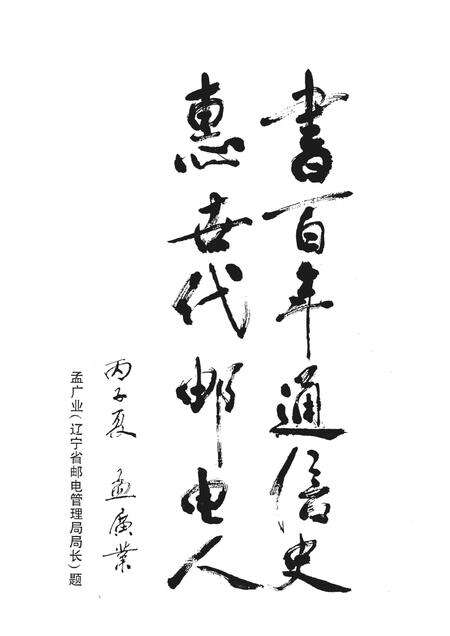 書百年通信史
惠世代邮电人
丙子夏 孟廣業
孟广业(辽宁省邮电管理局局长)题